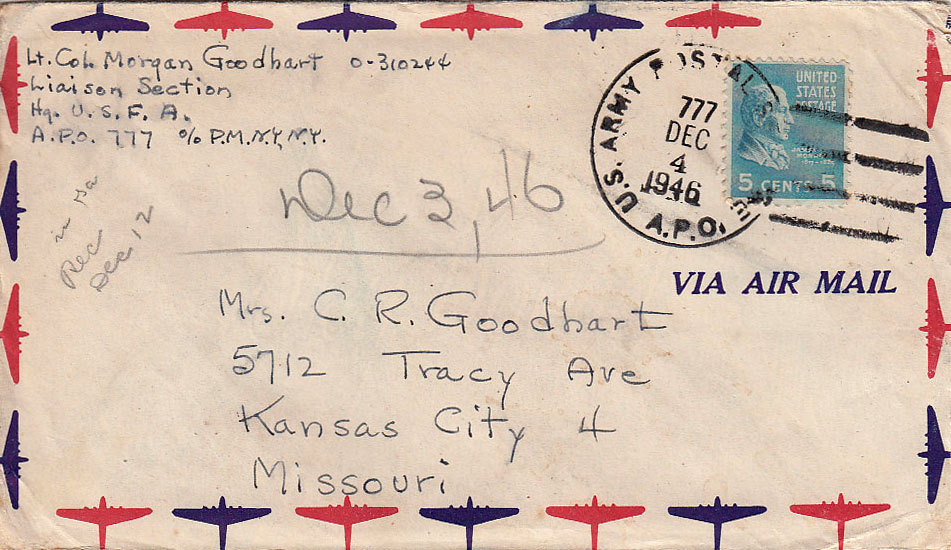 Lt. Col. Morgan Goodhart O-310244
Liaison Section
Hq. U.S.F.A.
A.P.O. 777 % P.M.N.Y, N.Y.
U.S. ARMY POSTAL
A.P.O.
777
DEC
4
1946
UNITED
STATES
POSTAGE
5 CENTS 5
Dec 3, 46
Rec
Dec 12
VIA AIR MAIL
Mrs. C. R. Goodhart
5712 Tracy Ave
Kansas City 4
Missouri